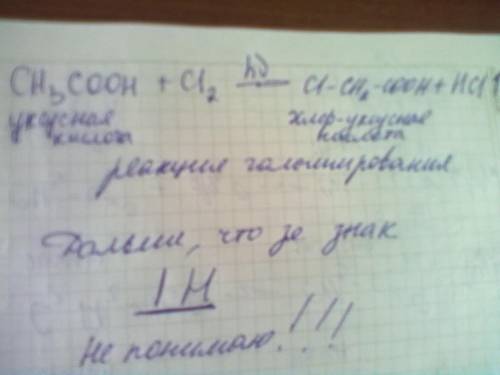 CH₃COOH + Cl₂ hν Cl-CH₂-COOH + HCl↑
уксусная кислота хлор-уксусная кислота
реакция галогенирования
Дальше, что за знак
1 H
Не понимаю!!!